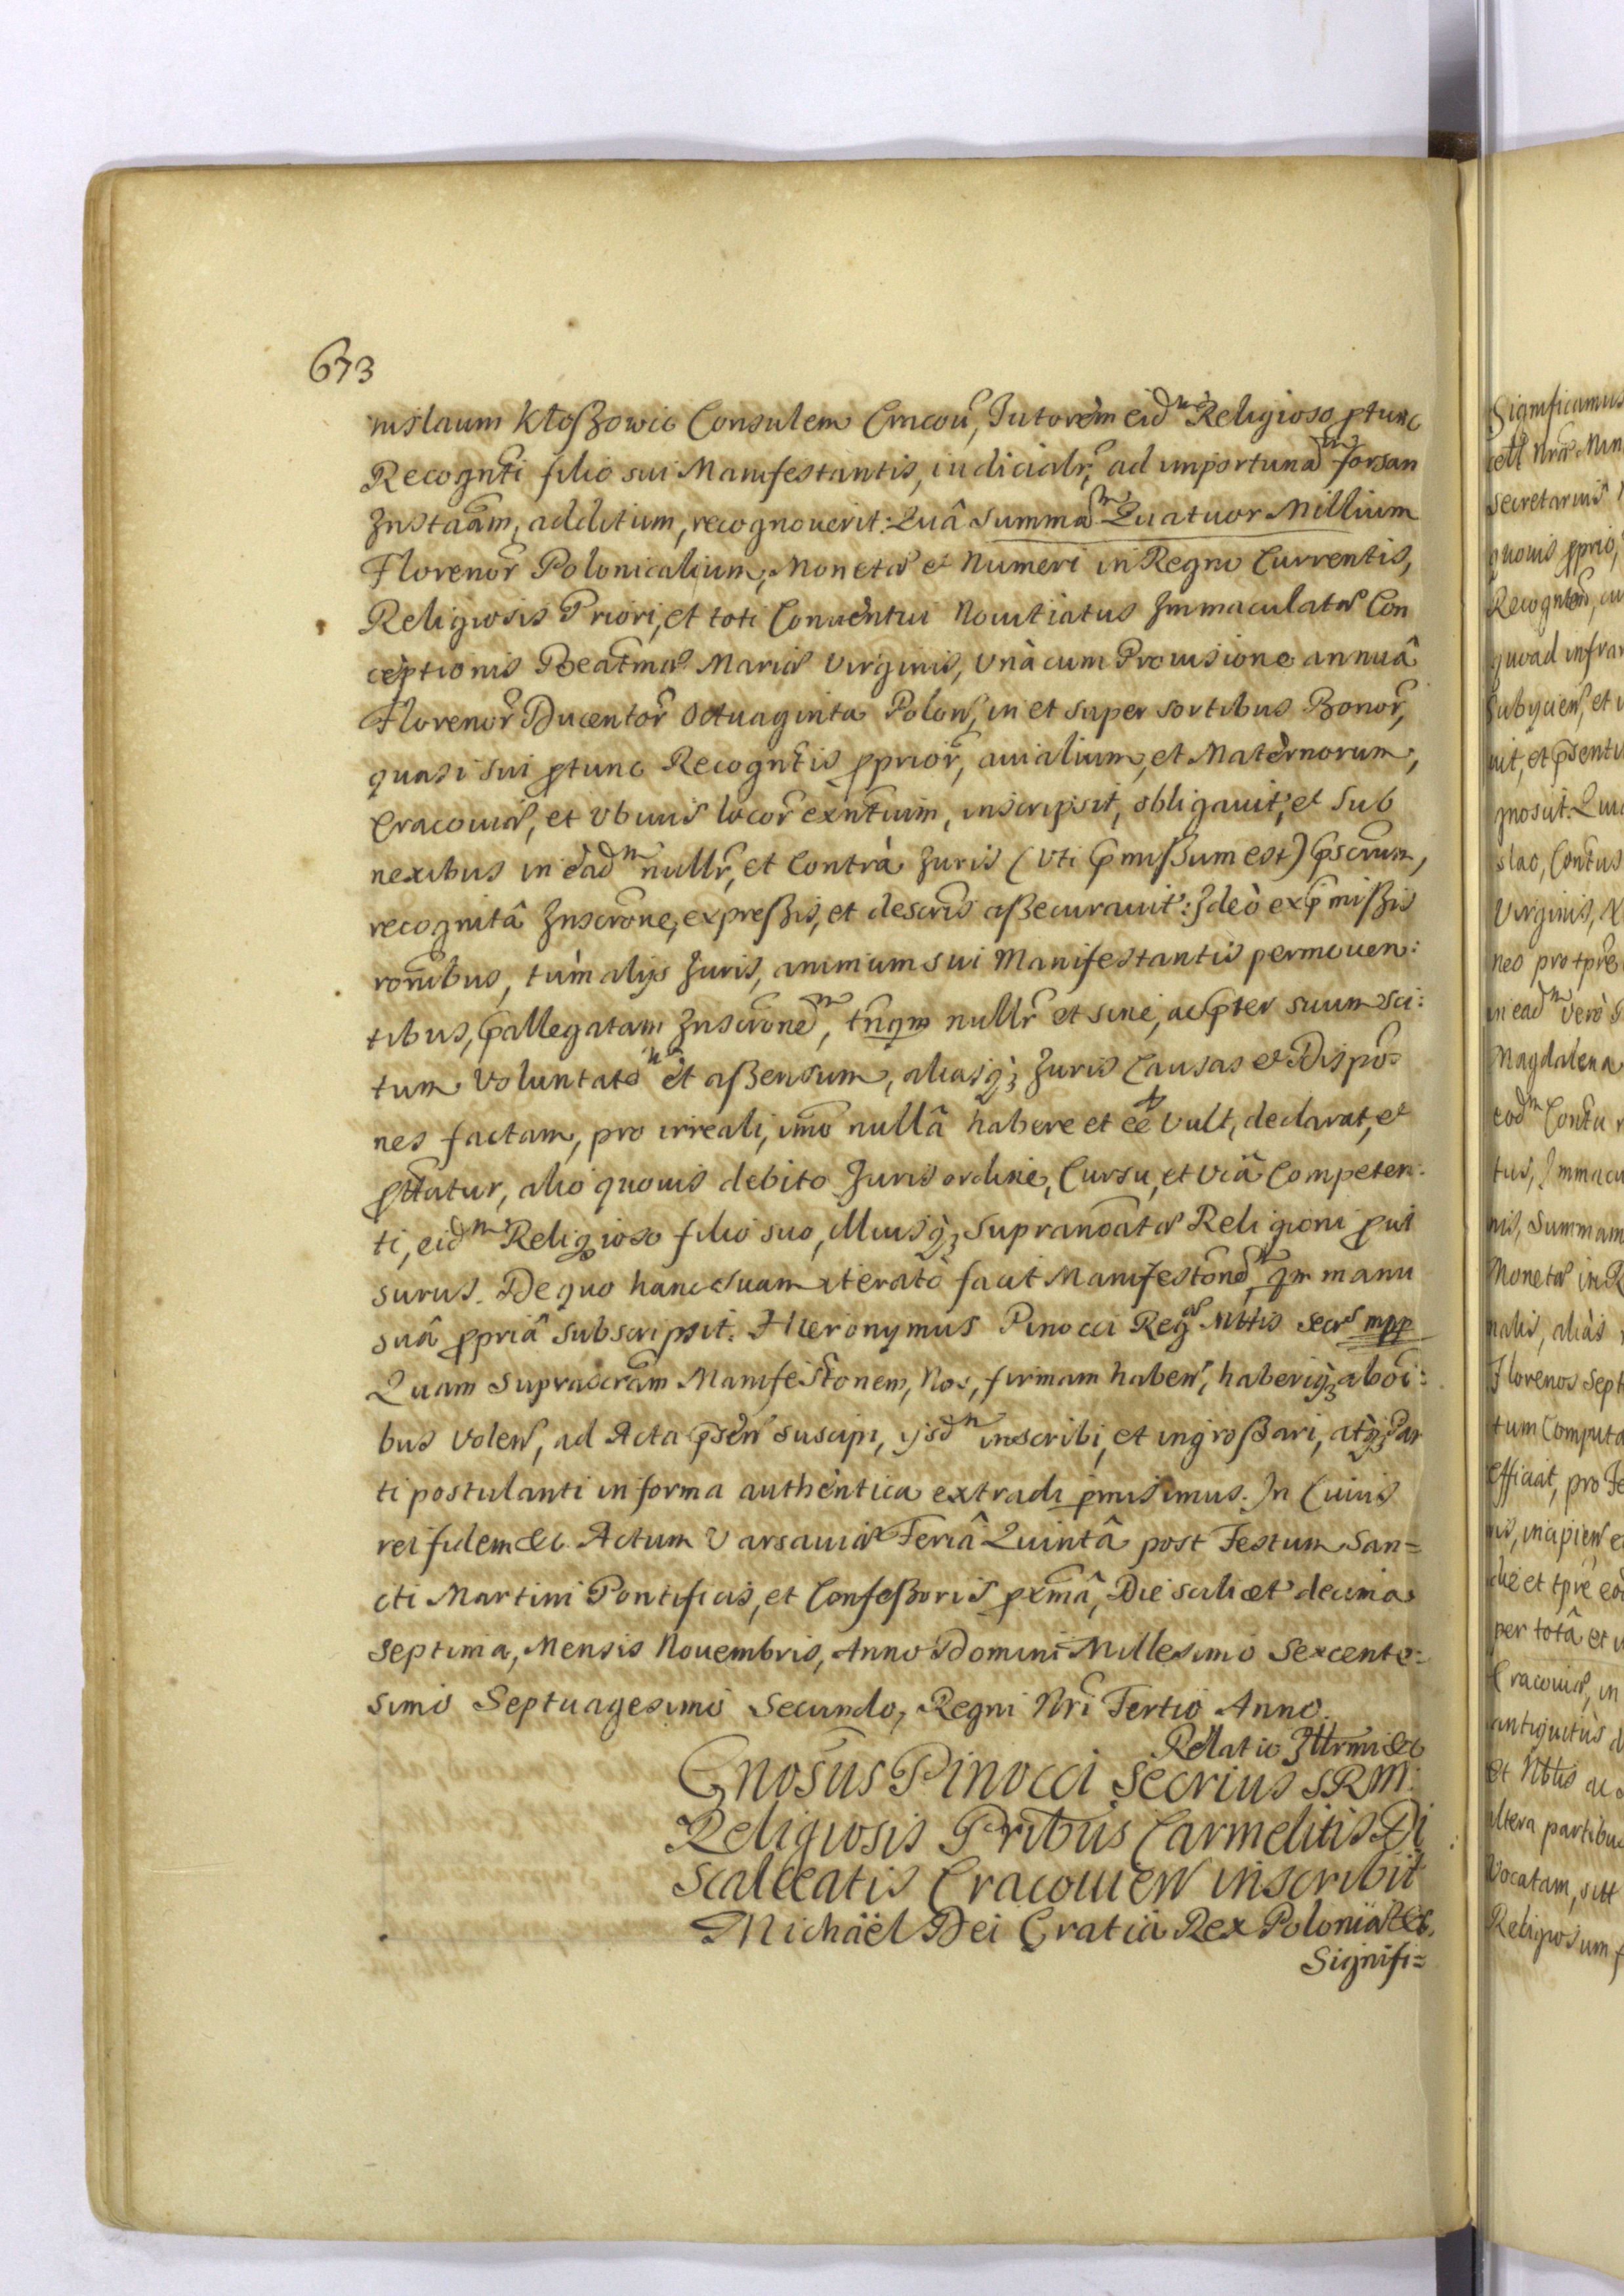 673
nislaum Kłoszowic Consulem Cracou, Tutorem eidm Religioso ptunc
Recognti filio sui Manifestantis, iudicialr, ad importunam forsan
Instaam, additum, recognouerit: Quâ summam Quatuor Millium
Florenor Polonicalium, Monetæ et Numeri in Regno Currentis,
Religiosis Priori, et toti Conuentui Nouitiatus Immaculatæ Con
ceptionis Beatmæ Mariæ Virginis, Vnà cum Prouisione annuâ
Florenor Ducentor Octuaginta Polon, in et super sortibus Bonor,
quasi sui ptunc Recogntis pprior, auialium, et Maternorum,
Cracouiæ, et Vbiuis locor exntium, inscripsit, obligauit, et Sub
nexibus in eadm nullr, et Contrà Juris (Vti pmissum est) pscrum,
recognitâ Inscrone, expressis, et descris assecurauit: Ideò ex pmissis
ronibus, tùm alijs Juris, animum sui Manifestantis permouen:
tibus, pallegatam Inscronem, tnqm nullr et sine, ac pter suum sci:
tum Voluntatem et assensum, aliasq; Juris Causas et Dispo=
nes factam, pro irreali, imo nullâ habere et ee Vult, declarat, et
pttatur, alio quouis debito Juris ordine, Cursu, et Viâ Competen:
ti, eidm Religioso filio suo, illiusq; Supranoatæ Religioni pui
surus. De quo hanc Suam iteratò facit Manifestonem, qm manu
suâ ppriâ Subscripsit. Hieronymus Pinocci Regæ Mttis Secrs mpp
Quam Suprascram Manifestonem, Nos, firmam haben, haberiq; ab oi:
bus Volen, ad Acta psen suscipi, ijsdm inscribi, et ingrossari, atq; Par
ti postulanti in forma authentica extradi pmisimus. In Cuius
rei fidem &c. Actum Varsauiæ Feriâ Quintâ post Festum San=
cti Martini Pontificis, et Confessoris pxmâ, Die scilicet decima
septima, Mensis Nouembris, Anno Domini Millesimo Sexcente=
simo Septuagesimo Secundo, Regni Nri Tertio Anno.
Rellatio Illrmi &c
Gnosus Pinocci Secrius S R M:
Religiosis Pribus Carmelitis Di
scalceatis Cracouien inscribit
Michäël Dei Gratiâ Rex Poloniæ &c.
Signifi=
Significamus
secretarius
quouis pprio,
quoad infra
Virginis,
Magdalena
nis, Summam
Monetæ in
nalis, aliàs
Florenos Sept
tum Computa
efficiat, pro
per totâ et
Cracouiæ, in
antiquitùs
altera partibus
Vocatam, sitt
Religiosum